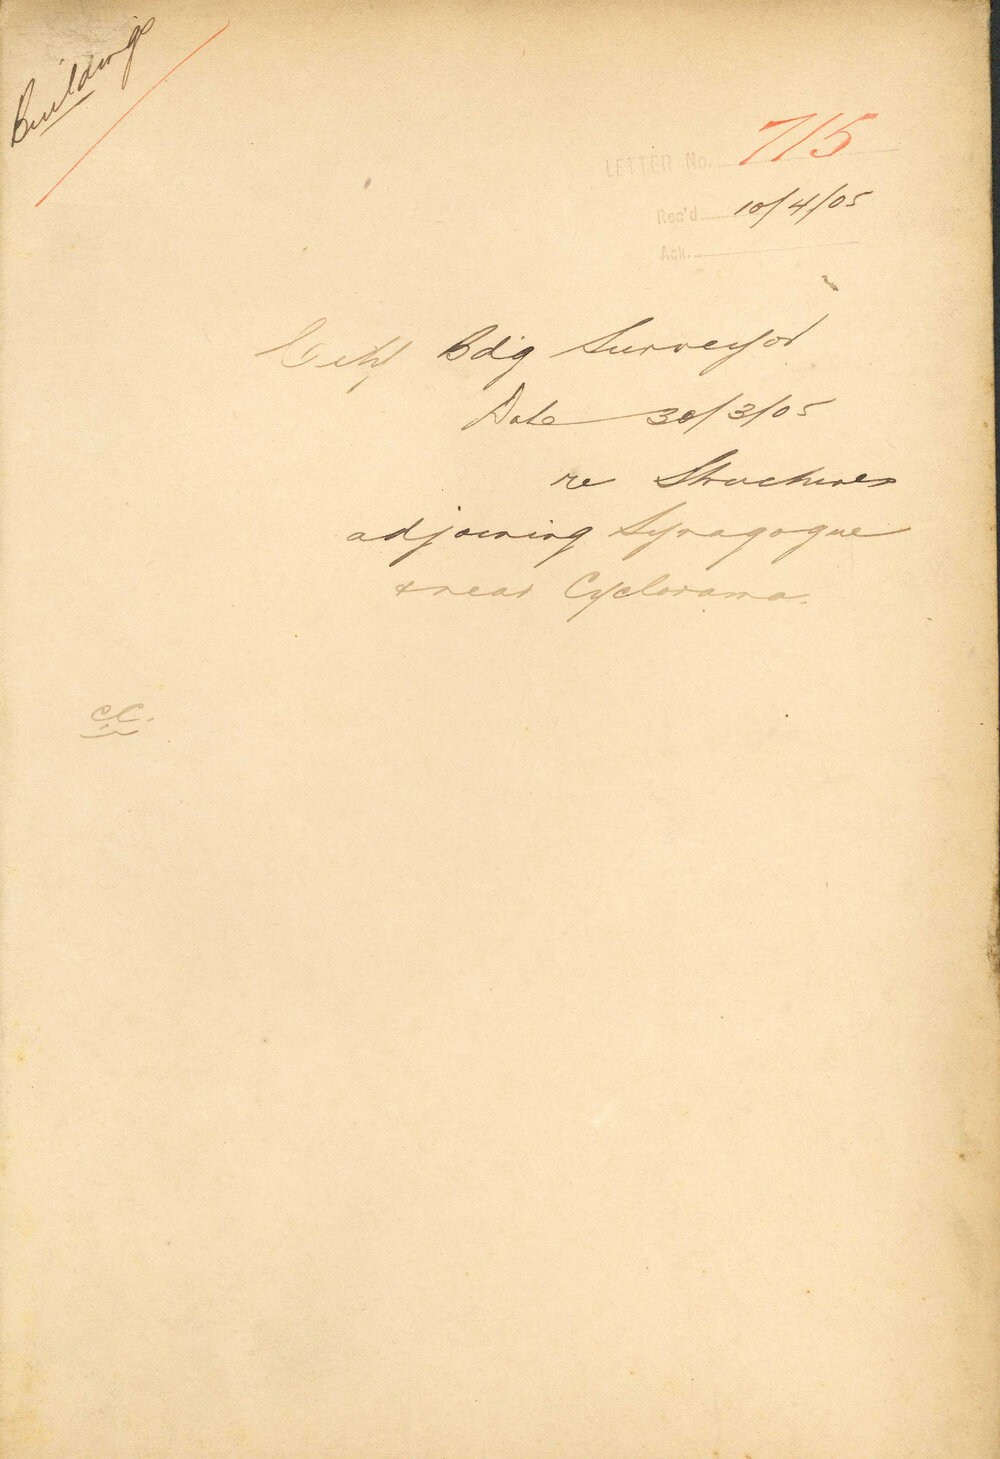 Buildings
LETTER No. 715
Rec'd 10/4/05
Ack.
City Bdg Surveyor
Date 30/3/05
re Structures
adjoining Synagogue
& near Cyclorama.
C.C.